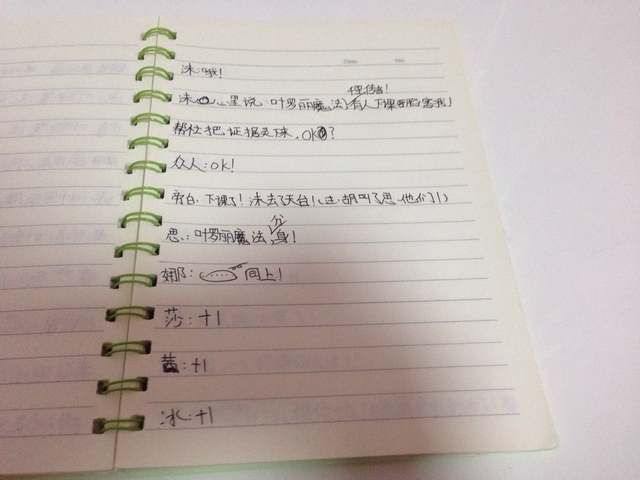 沫哦!
沫心里说:叶罗丽魔法,传话!有人下课要害我!
帮忙把证据录下来,OK?
众人:ok!
旁白:下课了!沫去了天台!(注:胡叫了思他们)
思:叶罗丽魔法,分身!
娜:同上!
莎:+1
茜:+1
冰:+1